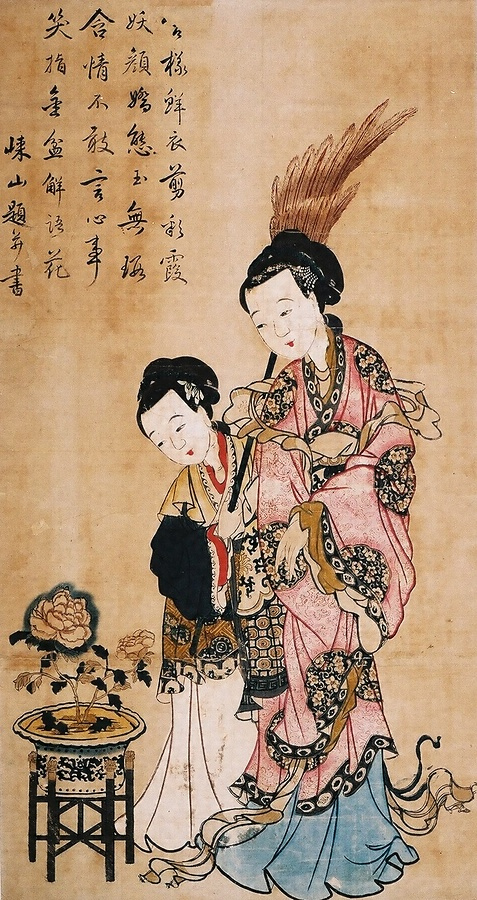 樣鮮衣剪彩霞
妖顏嬌態玉無瑕
含情不敢言心事
笑指金盆解語花
崍山題并書